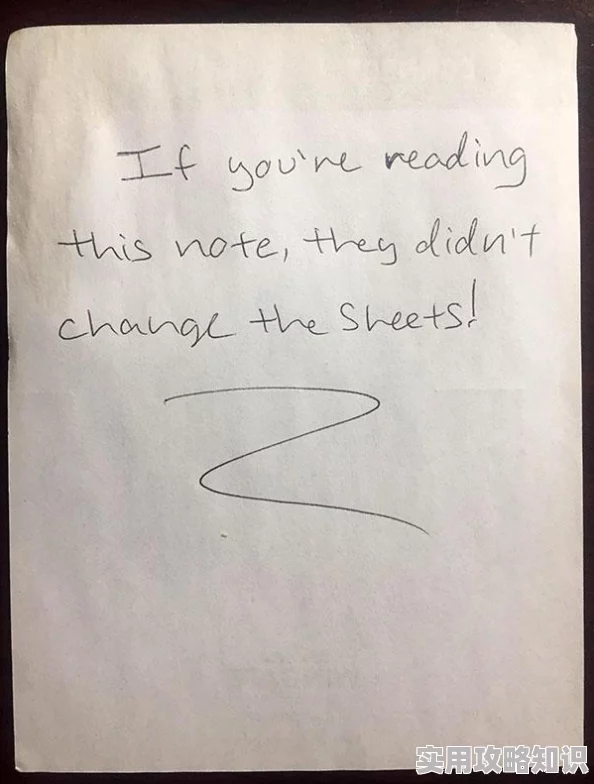 If you're reading
this note, they didn't
change the sheets!
实用攻略知识